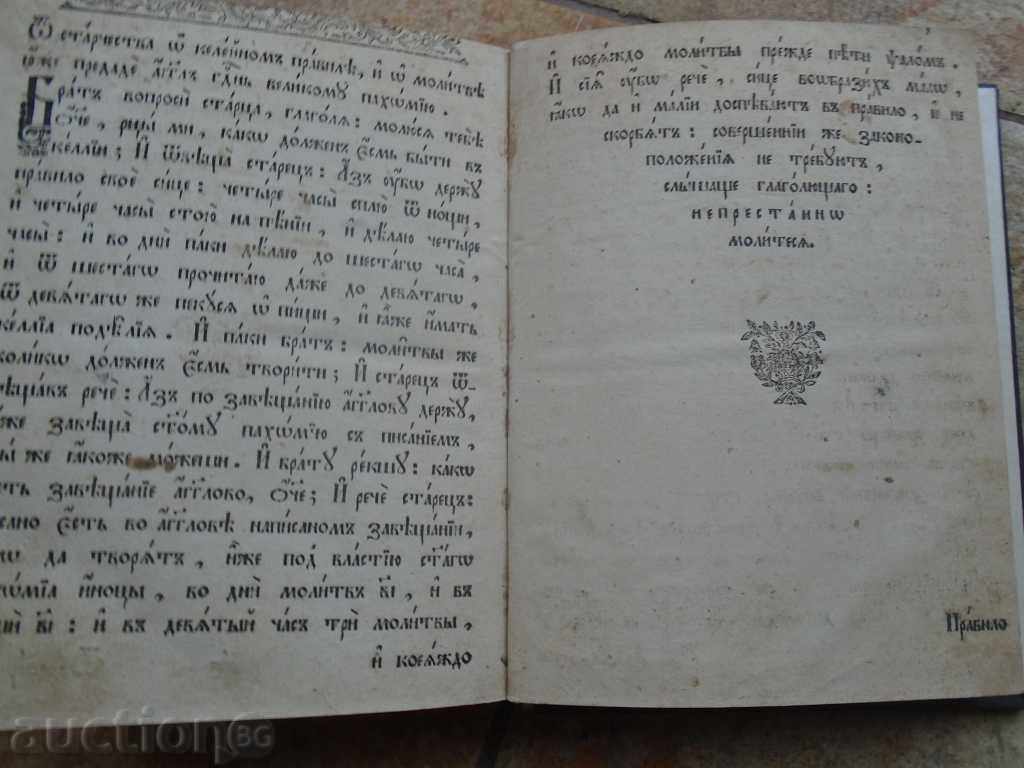 Ѿ старчества ѿ келейномъ правилѣ, и ѿ молитвѣ
юже предаде аг҃глъ гд҃нь великому пахѡмїю.
Братъ вопроси старца, глаголя: молюся тебѣ
ѻ҃че, рцы ми, какѡ долженъ есмь быти въ
келлїи; И ѿвѣща старецъ: Азъ оубѡ держу
правило свое сице: четыре часы сплю ѿ нощи,
и четыре часы стою на пѣнїи, и дѣлаю четыре
часы: и во дни паки дѣлаю до шестагѡ часа,
и ѿ шестагѡ прочитаю даже до девятагѡ,
ѿ девятагѡ же пекуся ѡ пищи, и яже имать
келлїа подѣлїя. И паки братъ: молитвы же
коликѡ долженъ есмь творити; И старецъ ѿ-
вѣщавъ рече: Азъ по завѣщанїю аг҃глову держу,
же завѣща ст҃ому пахѡмїю съ писанїемъ,
ы же якоже можеши. И брату рекшу: какѡ
ть завѣщанїе аг҃глово, ѻ҃че; И рече старецъ:
сано есть во аг҃гловѣ написаномъ завѣщанїи,
кѡ да творятъ, иже под властїю ст҃агѡ
хѡмїа иноцы, во дни молитвъ в҃і, и въ
щи в҃і: и въ девятый часъ три молитвы,
и коеяждо
и коеяждо молитвы прежде пѣти ѱаломъ.
И сїя оубѡ рече, сице воѡбразихъ малѡ,
якѡ да и малїи доспѣваютъ въ правило, и не
скорбятъ: совершеннїи же законо-
положенїя не требуютъ,
слышаще глаголющаго:
непрестаннѡ
молитеся.
Правило
auction BG